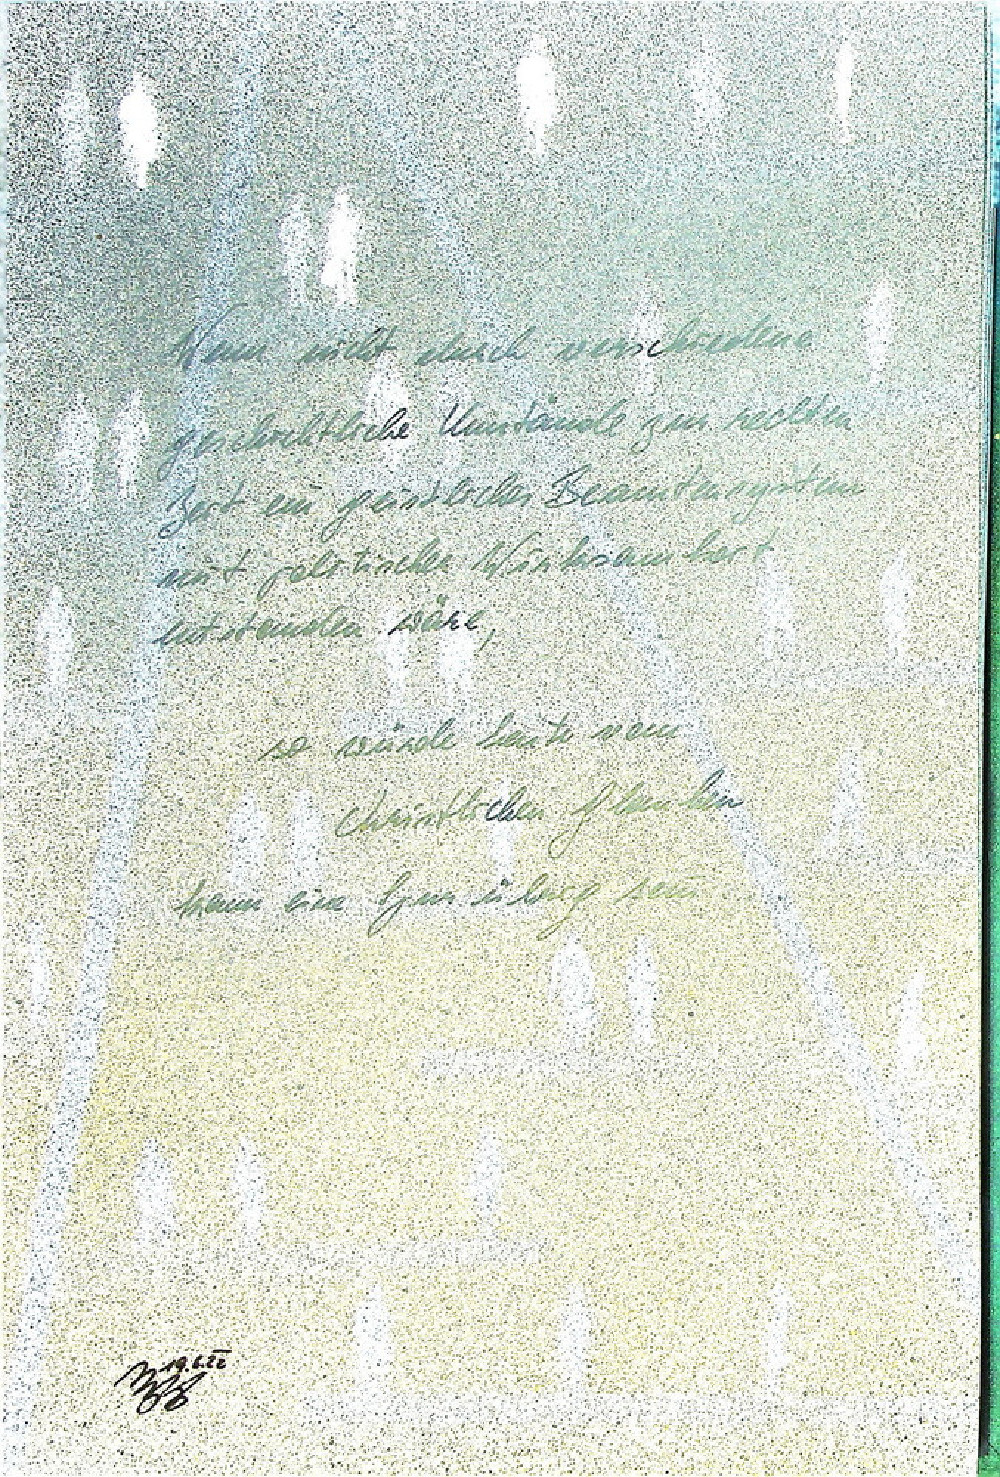 Wenn nicht durch verschiedene
geschichtliche Umstände zur rechten
Zeit ein geistliches Beamtensystem
mit politischer Wirksamkeit
entstanden wäre,
so würde heute vom
christlichen Glauben
kaum eine Spur übrig sein
19.6.22